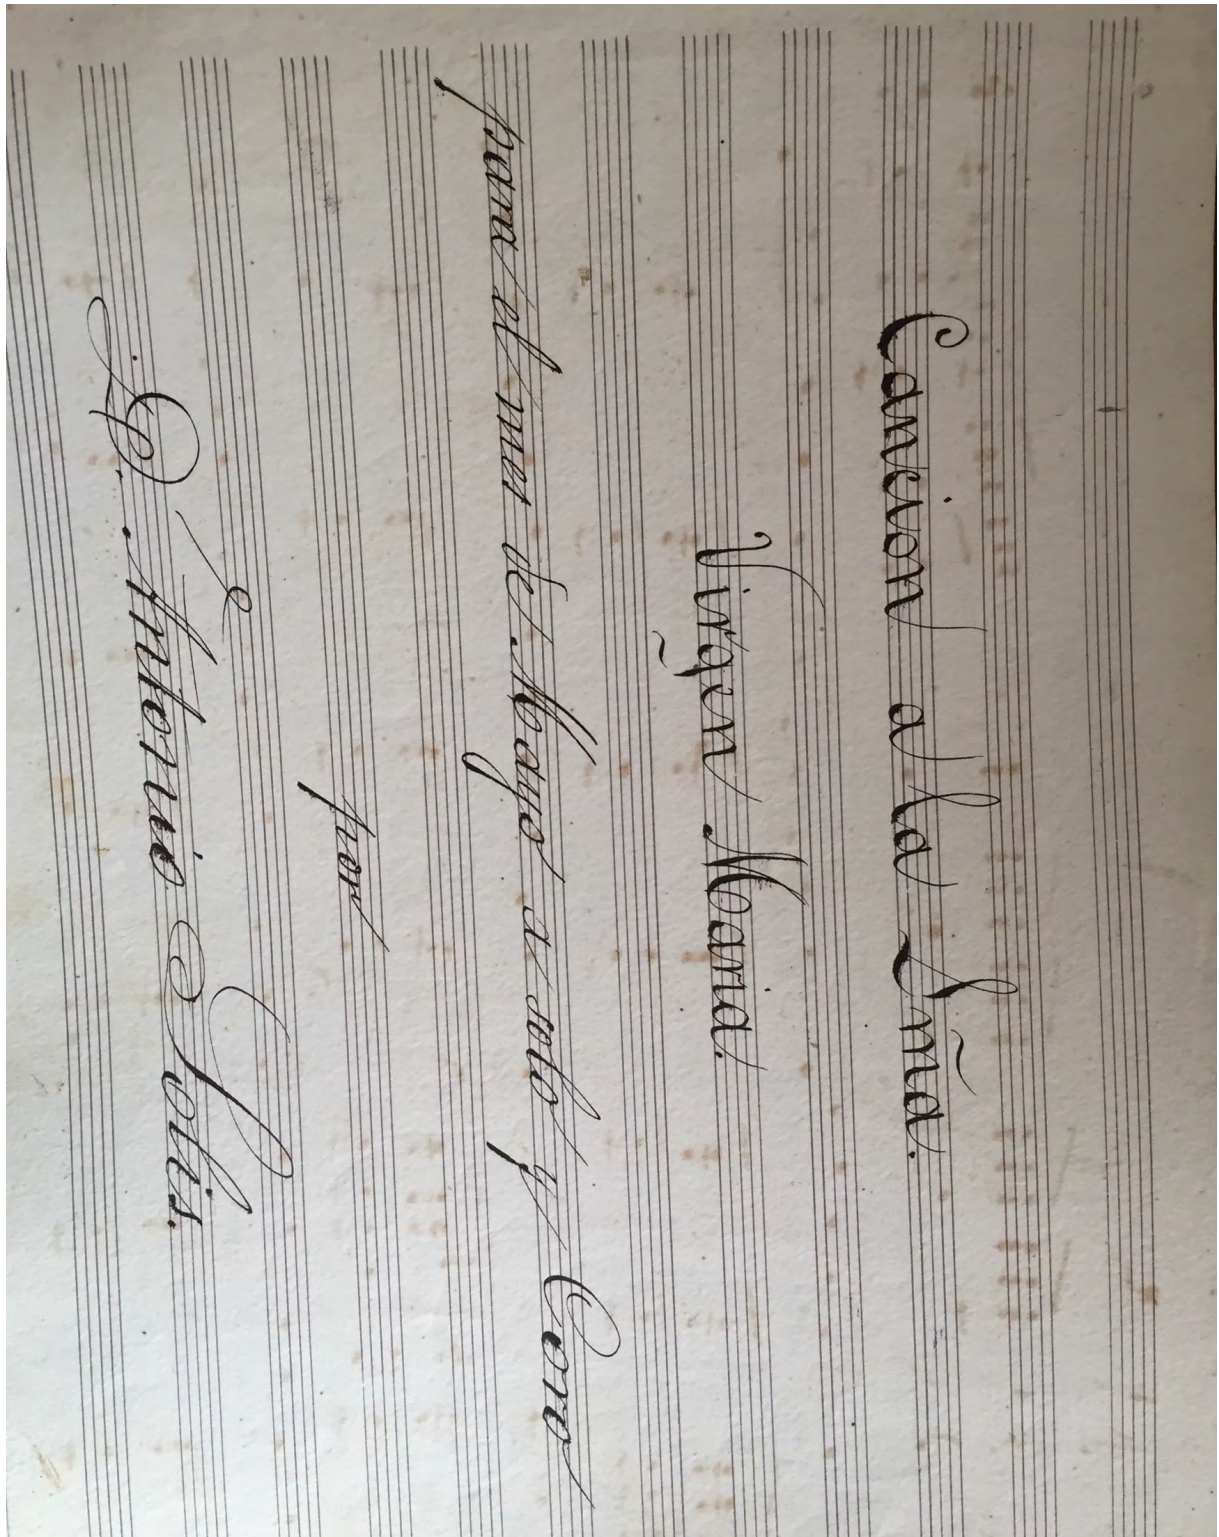 Cancion a la Sm̃a.
Virgen Maria.
para el mes de Mayo a solo y Coro
por
D. Antonio Solis.